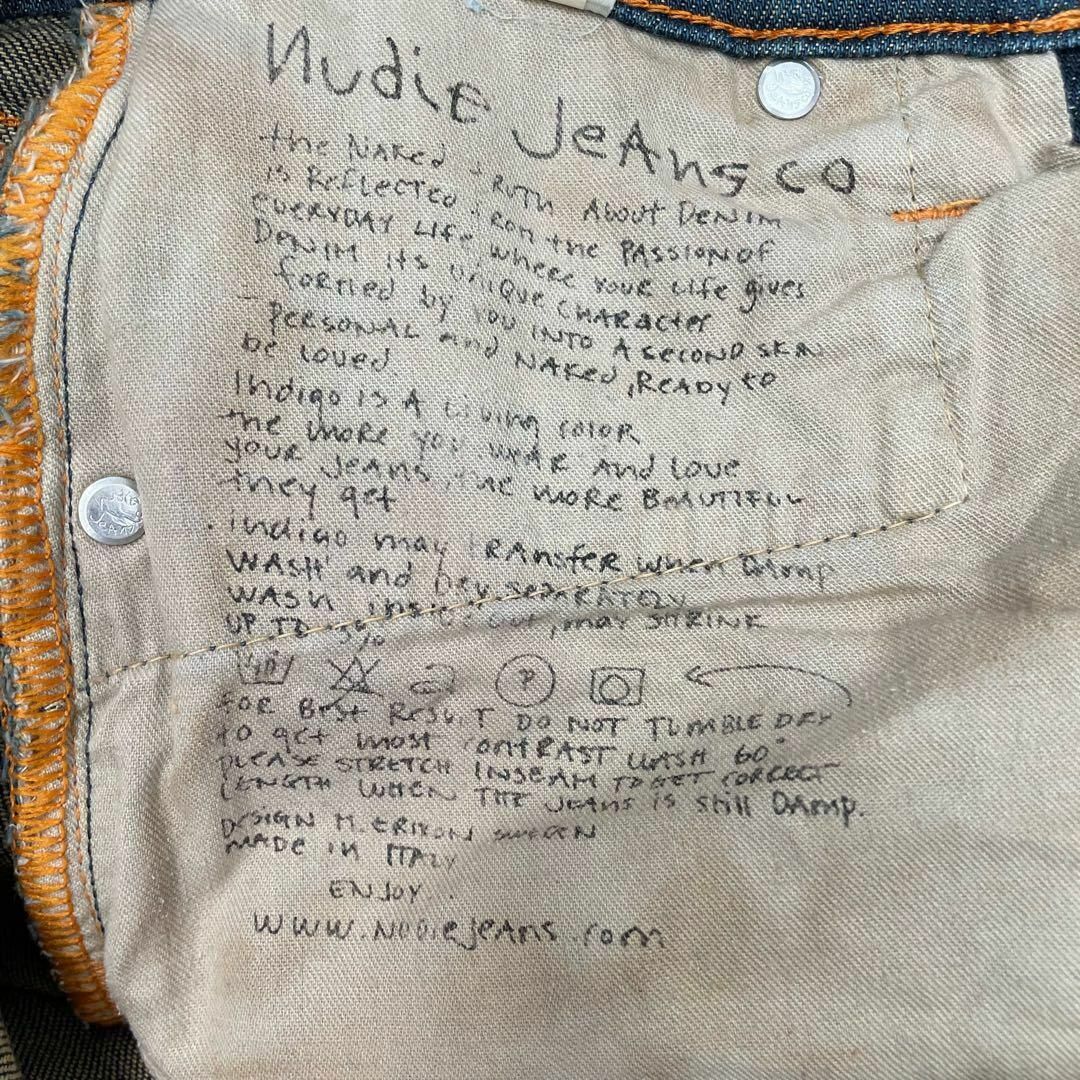 Nudie Jeans co
the Naked Truth About Denim
is Reflected from the Passion of
everyday Life where your Life gives
Denim its unique character
formed by you into a second skin
- personal and Naked, Ready to
be loved
Indigo is a Living color
The more you wear and love
your jeans the more Beautiful
they get
. indigo may transfer when Damp
Wash and Dry separately
Wash inside out, may shrink
up to %
40 P
For Best Result do not tumble dry
to get most contrast wash 60°
please stretch inseam to get correct
length when the jeans is still Damp.
Design M. Erixon Sweden
made in Italy
Enjoy...
www.Nudiejeans.com
NUDIE JEANS